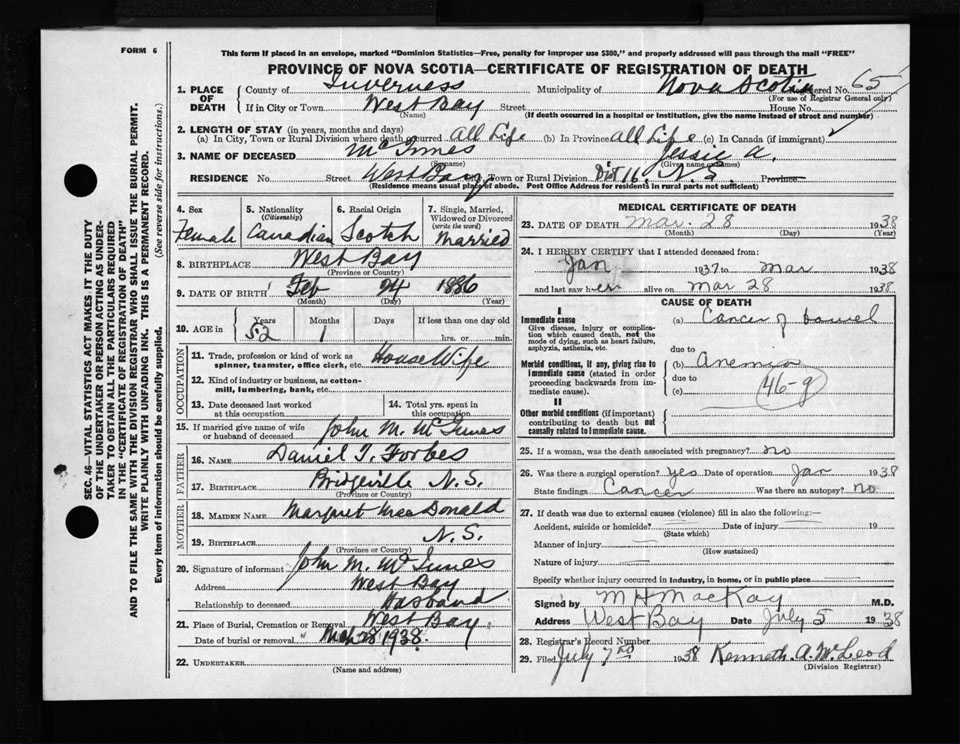 FORM 6
This form if placed in an envelope, marked "Dominion Statistics—Free, penalty for improper use $300," and properly addressed will pass through the mail "FREE"
PROVINCE OF NOVA SCOTIA—CERTIFICATE OF REGISTRATION OF DEATH
1. PLACE OF DEATH
County of Inverness Municipality of Nova Scotia Registered No. 65
(For use of Registrar General only)
If in City or Town West Bay Street House No.
(Name) (If death occurred in a hospital or institution, give the name instead of street and number)
2. LENGTH OF STAY (in years, months and days)
(a) In City, Town or Rural Division where death occurred All Life (b) In Province All Life (c) In Canada (if immigrant)
3. NAME OF DECEASED McInnes Jessie A.
(Surname) (Given name or names)
RESIDENCE No. Street West Bay City, Town or Rural Division Dist 16, N.S. Province
(Residence means usual place of abode. Post Office Address for residents in rural parts not sufficient)
4. Sex
Female
5. Nationality
(Citizenship)
Canadian
6. Racial Origin
Scotch
7. Single, Married, Widowed or Divorced
(write the word)
Married
8. BIRTHPLACE West Bay
(Province or Country)
9. DATE OF BIRTH Feb 24 1886
(Month) (Day) (Year)
10. AGE in Years Months Days If less than one day old
52 1 hrs. or min.
OCCUPATION
11. Trade, profession or kind of work as spinner, teamster, office clerk, etc. House Wife
12. Kind of industry or business, as cotton-mill, lumbering, bank, etc.
13. Date deceased last worked at this occupation
14. Total yrs. spent in this occupation
15. If married give name of wife or husband of deceased John M. McInnes
FATHER
16. NAME Daniel T. Forbes
17. BIRTHPLACE Bridgeville N.S.
(Province or Country)
MOTHER
18. MAIDEN NAME Margaret MacDonald
19. BIRTHPLACE N.S.
(Province or Country)
20. Signature of informant John M. McInnes
Address West Bay
Relationship to deceased Husband
21. Place of Burial, Cremation or Removal West Bay
Date of burial or removal 1938.
22. UNDERTAKER
(Name and address)
MEDICAL CERTIFICATE OF DEATH
23. DATE OF DEATH Mar. 28 1938
(Month) (Day) (Year)
24. I HEREBY CERTIFY that I attended deceased from:
Jan 1937 to Mar 1938
and last saw h er alive on Mar 28 1938.
CAUSE OF DEATH
I
Immediate cause
Give disease, injury or complication which caused death, not the mode of dying, such as heart failure, asphyxia, asthenia, etc.
(a) Cancer of bowel
due to
Morbid conditions, if any, giving rise to immediate cause (stated in order proceeding backwards from immediate cause).
(b) Anemia
due to
(c) 46-g
II
Other morbid conditions (if important) contributing to death but not causally related to immediate cause.
25. If a woman, was the death associated with pregnancy? no
26. Was there a surgical operation? yes Date of operation Jan 1938
State findings Cancer Was there an autopsy? no
27. If death was due to external causes (violence) fill in also the following:—
Accident, suicide or homicide? Date of injury 19
(State which)
Manner of injury
(How sustained)
Nature of injury
Specify whether injury occurred in industry, in home, or in public place
Signed by M H MacKay M.D.
Address West Bay Date July 5 1938
28. Registrar's Record Number
29. Filed July 7 1938 Kenneth A. McLeod
(Division Registrar)
SEC. 46—VITAL STATISTICS ACT MAKES IT THE DUTY
OF THE UNDERTAKER OR PERSON ACTING AS UNDER-
TAKER TO OBTAIN ALL THE PARTICULARS REQUIRED
IN THE "CERTIFICATE OF REGISTRATION OF DEATH"
AND TO FILE THE SAME WITH THE DIVISION REGISTRAR WHO SHALL ISSUE THE BURIAL PERMIT.
WRITE PLAINLY WITH UNFADING INK. THIS IS A PERMANENT RECORD.
Every item of information should be carefully supplied. (See reverse side for instructions.)